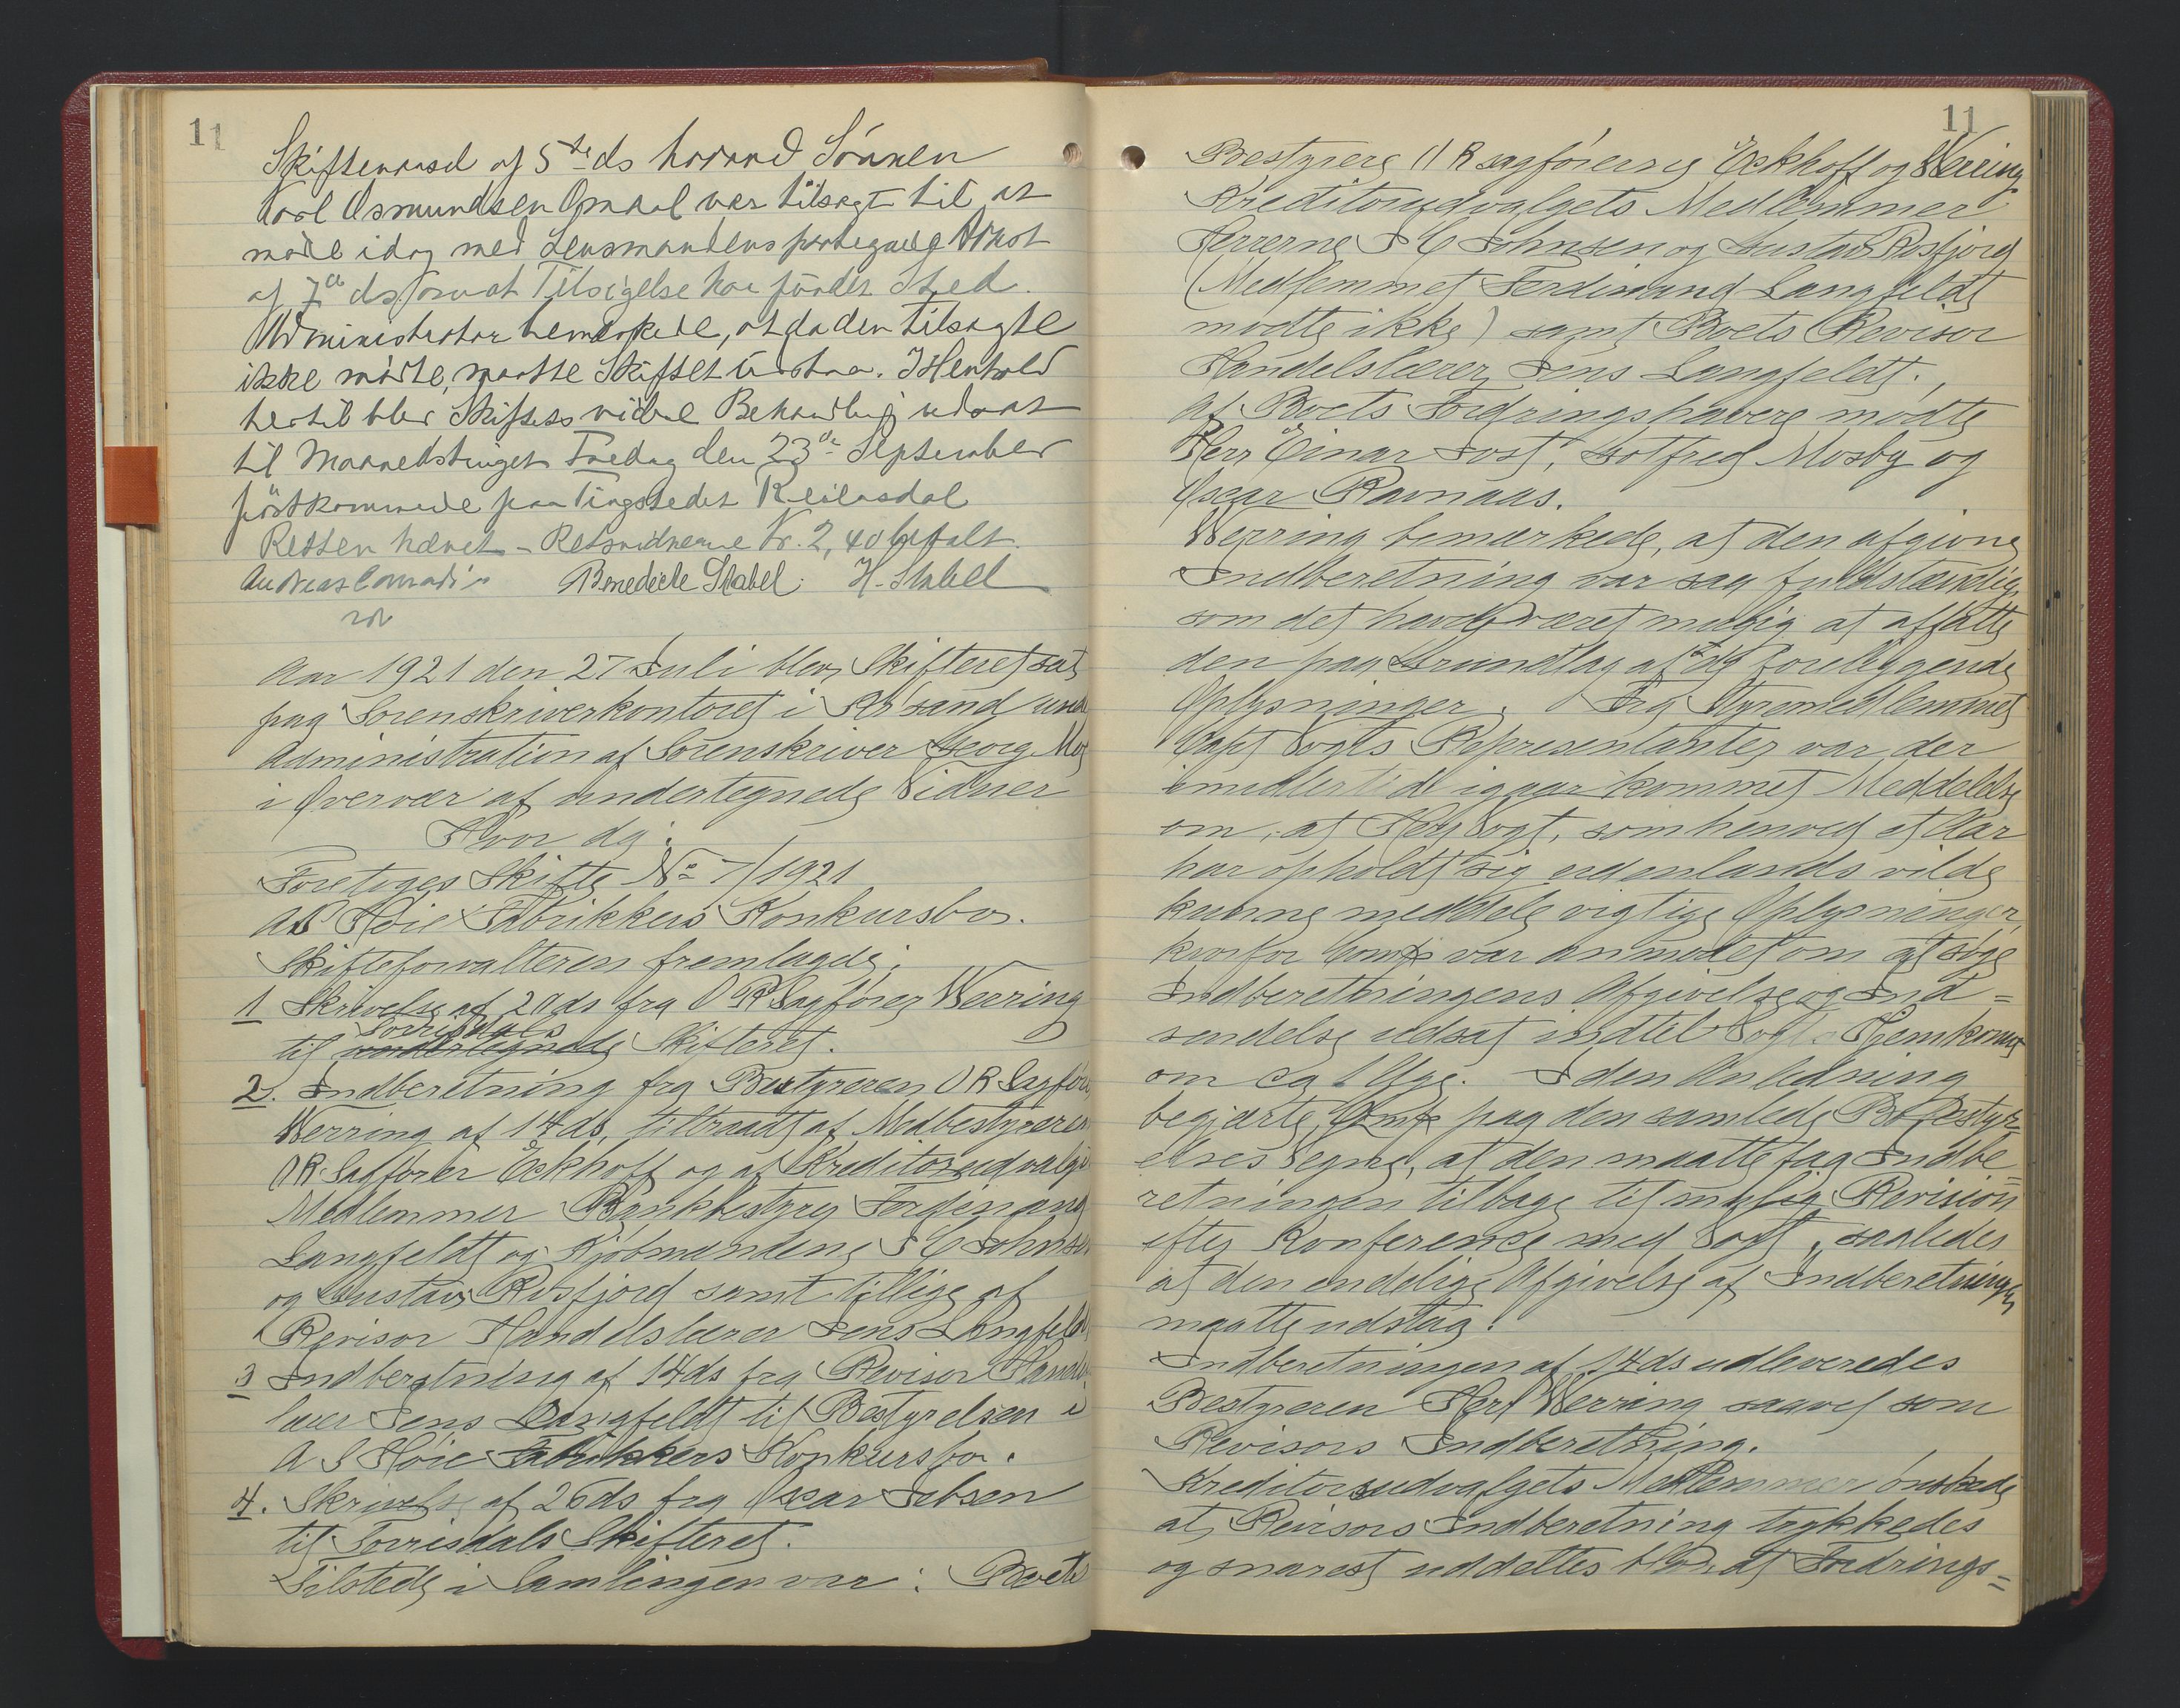 11
Skiftevarsel af 5te ds hvorved Sönnen
Karl Asmundsen Opsaal var tilsagt til at
møde idag med Lensmandens paategnede Attest
af 7de ds om at Tilsigelse har fundet Sted.
Administrator bemærkede, at da den tilsagte
ikke mödte, maatte Skiftet udstaa. I Henhold
hertil blev Skiftets videre Behandling udsat
til Maanedstinget Fredag den 23de September
förstkommende paa Tingstedet Reiersdal
Retten hævet – Retsvidnerne Kr. 2,40 betalt.
Benedicte Stabel. H. Stabell
Aar 1921 den 27 Juli blev Skifteret sat
paa Sorenskriverkontoret i Kr.sand under
Administration af Sorenskriver Georg Moe
i Overvær af undertegnede Vidner
Hvor da:
Foretoges Skifte No 7/1921
A/S Høie Fabrikkers Konkursbo.
Skifteforvalteren fremlagde:
1 Skrivelse af 20 ds fra O R Sagfører Werring
Torrisdals
til undertegnede Skifteret.
2. Indberetning fra Bestyreren O R Sagfører
Werring af 14 ds, tiltraadt af Medbestyreren
O R. Sagfører Eckhoff og af Kreditorudvalgets
Medlemmer Bankbestyrer Ferdinand
Langfeldt og Kjøbmændene I C Johnsen
og Gustav Rosfjord samt tillige af
Revisor Handelslærer Jens Langfeldt
3 Indberetning af 14 ds fra Revisor Handels
lærer Jens Langfeldt til Bestyrelsen i
A S Høie Fabrikkers Konkursbo.
4. Skrivelse af 26 ds fra Oscar Jebsen
til Torrisdals Skifteret.
Tilstede i Samlingen var: Boets
11
Bestyrere O R sagførerne Eckhoff og Werring
Kreditorudvalgets Medlemmer
Herrerne I C Johnsen og Gustav Rosfjord
(Medlemmet Ferdinand Langfeldt
mødte ikke) samt Boets Revisor
Handelslærer Jens Langfeldt.
Af Boets Fordringshavere mødte
Herr Einar Jost, Gotfred Mosby og
Oscar Ravnaas.
Werring bemærkede, at den afgivne
Indberetning var saa fuldstændig,
som det havde været mulig at affatte
den paa Grundlag af da foreliggende
Oplysninger. Fra Styremedlemmet
Capt Vogts Repræsentanter var der
imidlertid igaar kommet Meddelelse
om, at Herr Vogt, som henved et Aar
har opholdt sig udenlands vilde
kunne meddele vigtige Oplysninger,
hvorfor Comp var anmodet om at søge
Indberetningens Afgivelse og Ind=
sendelse udsat indtil Vogts Hjemkomst
om ca 1 Uge. I den Anledning
begjærte Comp paa den samlede Bobestyr=
elses Vegne, at den maatte faa Indbe=
retningen tilbage til mulig Revision
efter Konference med Vogt, saaledes
at den endelige Afgivelse af Indberetningen
maatte udstaa.
Indberetningen af 14 ds udleveredes
Bestyreren Herr Werring saavel som
Revisors Indberetning.
Kreditorudvalgets Medlemmer ønskede
at Revisors Indberetning trykkedes
og snarest uddeltes blandt Fordrings=